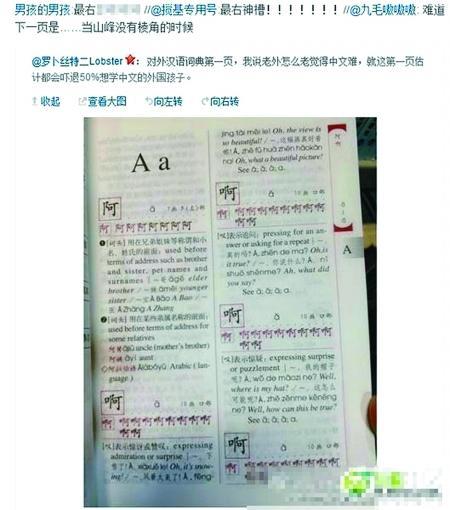 男孩的男孩:最右 //@搅基专用号:最右神槽！！！！！！！//@九毛嗷嗷嗷: 难道
下一页是……当山峰没有棱角的时候
@罗卜丝特二Lobster：对外汉语词典第一页，我说老外怎么老觉得中文难，就这第一页估
计都会吓退50%想学中文的外国孩子。
收起 查看大图 向左转 向右转
A a
阿 ā 7画 阝(左)部
❶[词头]用在兄弟姐妹等称谓和小
名、姓氏的前面: used before
terms of address such as brother
and sister, pet names and
surnames
elder
brother younger
sister A Bao
张 A Zhāng A Zhang
❷[词头]用在某些亲属名称的前面:
used before terms of address for
some relatives
阿舅 ājiù uncle (mother's brother)
阿姨 āyí aunt
◇阿拉伯语 Ālābóyǔ Arabic (lan-
guage)
啊 ā 10画 口部
[叹]表示惊讶或赞叹: expressing
admiration or surprise 下
雪了! Ā, xiàxuě le! Oh, it's snow-
ing!
jǐng tài měi le! Oh, the view is
so beautiful! 这幅画真好看
啊! Ā, zhè fú huà zhēn hǎokàn
na! Oh, what a beautiful picture!
See á; ǎ; à; a.
啊 á 10画 口部
[叹]表示追问: pressing for an an-
swer or asking for a repeat
真的吗? Á, zhēn de ma? Oh, is
it true? 你说什么? Á, nǐ
shuō shénme? Ah, what did
you say?
See ā; ǎ; à; a.
啊 ǎ 10画 口部
[叹]表示惊疑: expressing surprise
or puzzlement 我的帽子
呢? Ǎ, wǒ de màozi ne? Well,
where is my hat? 这怎么
可能呢? Ǎ, zhè zěnme kěnéng
ne? Well, how can this be true?
See ā; á; à; a.
啊 à 10画 口部
A